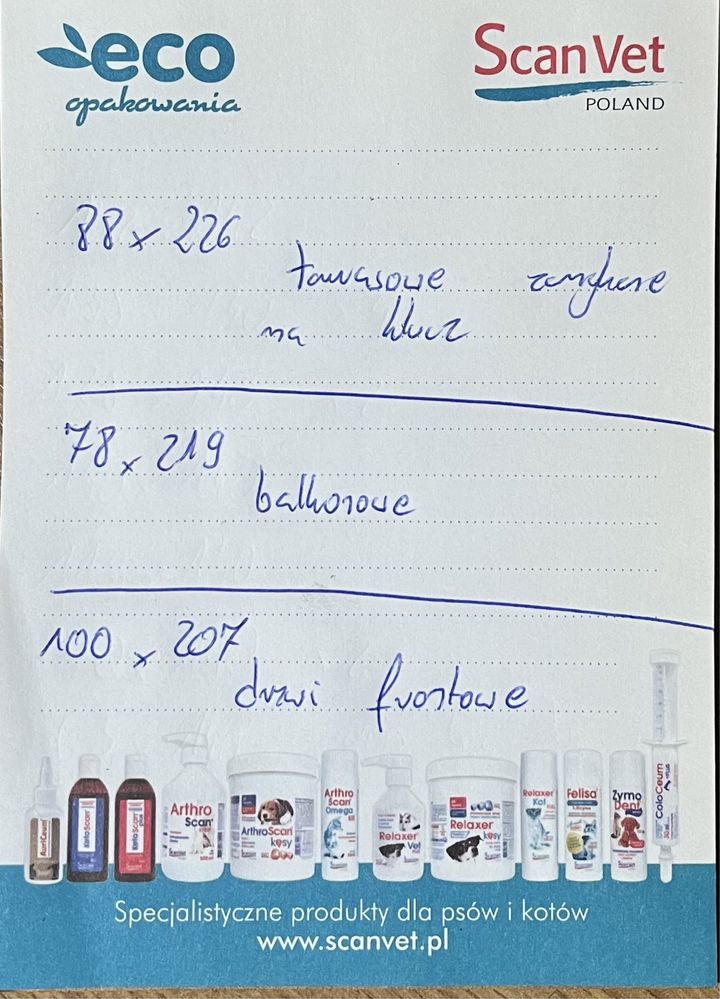 eco
opakowania
ScanVet
POLAND
88 x 226
tarasowe zamykane
na klucz
78 x 219
balkonowe
100 x 207
drzwi frontowe
Arthro
Scan
ArthroScan
kęsy
Arthro
Scan
Omega
Relaxer
Vet
Relaxer
kęsy
Relaxer
Kot
Felisa
Zymo
Dent
ColoCeum
Specjalistyczne produkty dla psów i kotów
www.scanvet.pl